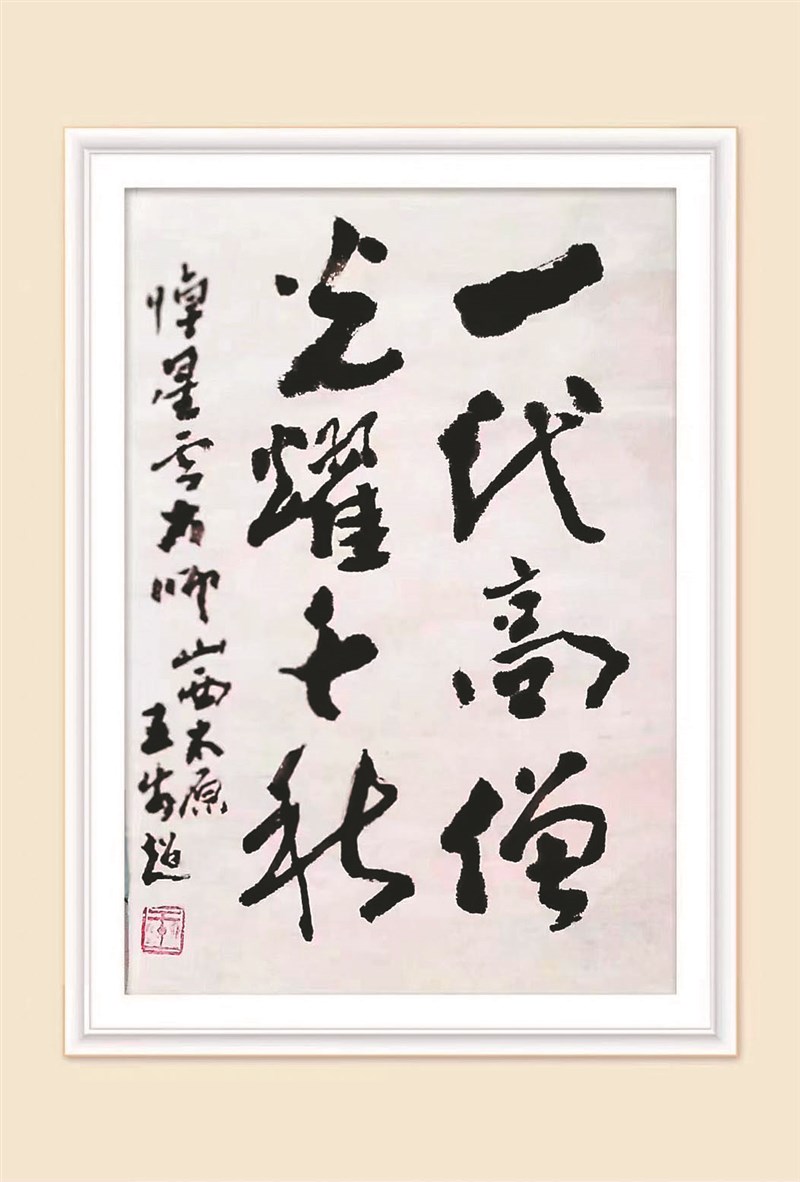 一代高僧
光耀千秋
悼星云大师
山西太原
王 题